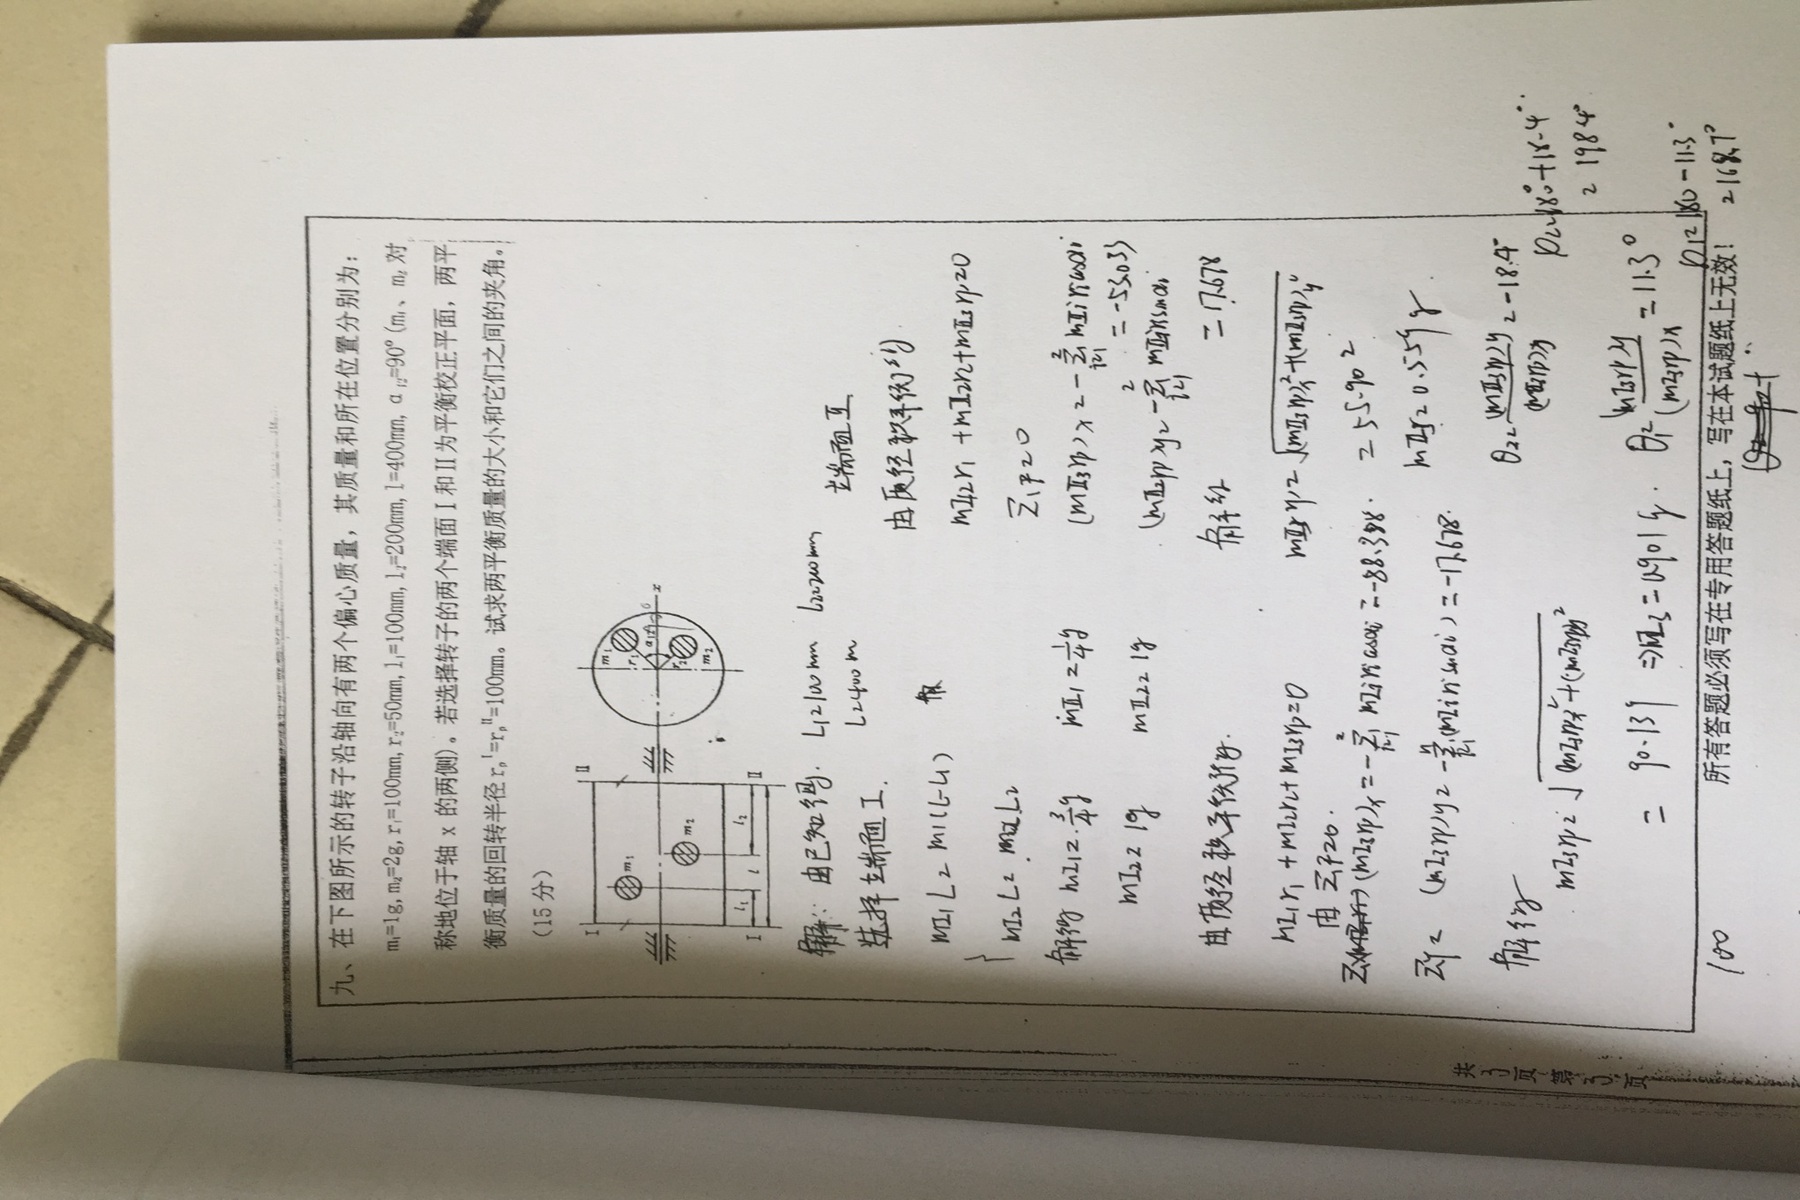 九、在下图所示的转子沿轴向有两个偏心质量，其质量和所在位置分别为：
m₁=1g, m₂=2g, r₁=100mm, r₂=50mm, l₁=100mm, l₂=200mm, l=400mm, α₁₂=90°（m₁、m₂ 对
称地位于轴 x 的两侧）。若选择转子的两个端面 I 和 II 为平衡校正平面，两平
衡质量的回转半径 rₚᴵ=rₚᴵᴵ=100mm。试求两平衡质量的大小和它们之间的夹角。
（15 分）
I II
m₁
m₂
l₁ l l₂
I II
m₁ r₁ α₁₂ x
r₂ m₂
解：由已知得. L₁=100mm L₂=200mm
L=400m
选择左端面 I.
mI₁L = m₁(L-L₁)
mI₂L = m₂L₂
解得 mI₁= 3/4g mII₁= 1/4g
mI₂= 1g mII₂= 1g
由质径积平衡得.
mI₁r₁+mI₂r₂+mI₃rp=0
由 Σx=0.
(mI₃rp)x=-ΣmIiricosαi=-88.398.
Σy= (mI₃rp)y=-Σ(mIirisinαi)=-17.678.
解得
mI₃rp=√(mI₃rp)x²+(mI₃rp)y²
= 90.139 ⇒mI₃=0.901g.
右端面 II
由质径积平衡得
mII₁r₁+mII₂r₂+mII₃rp=0
ΣiF=0
(mII₃rp)x=-ΣmIIiricosαi
=-53.033
(mII₃rp)y=-ΣmIIirisinαi
=17.678
解得
mII₃rp=√(mII₃rp)x²+(mII₃rp)y²
=55.902
mII₃=0.559g
θ₂=(mII₃rp)y/(mII₃rp)x=-18.4°
θ₁=(mI₃rp)y/(mI₃rp)x=11.3°
=180°+18.4°
=198.4°
=180-11.3°
=168.7°
所有答题必须写在专用答题纸上，写在本试题纸上无效！
100
共 3 页 第 3 页